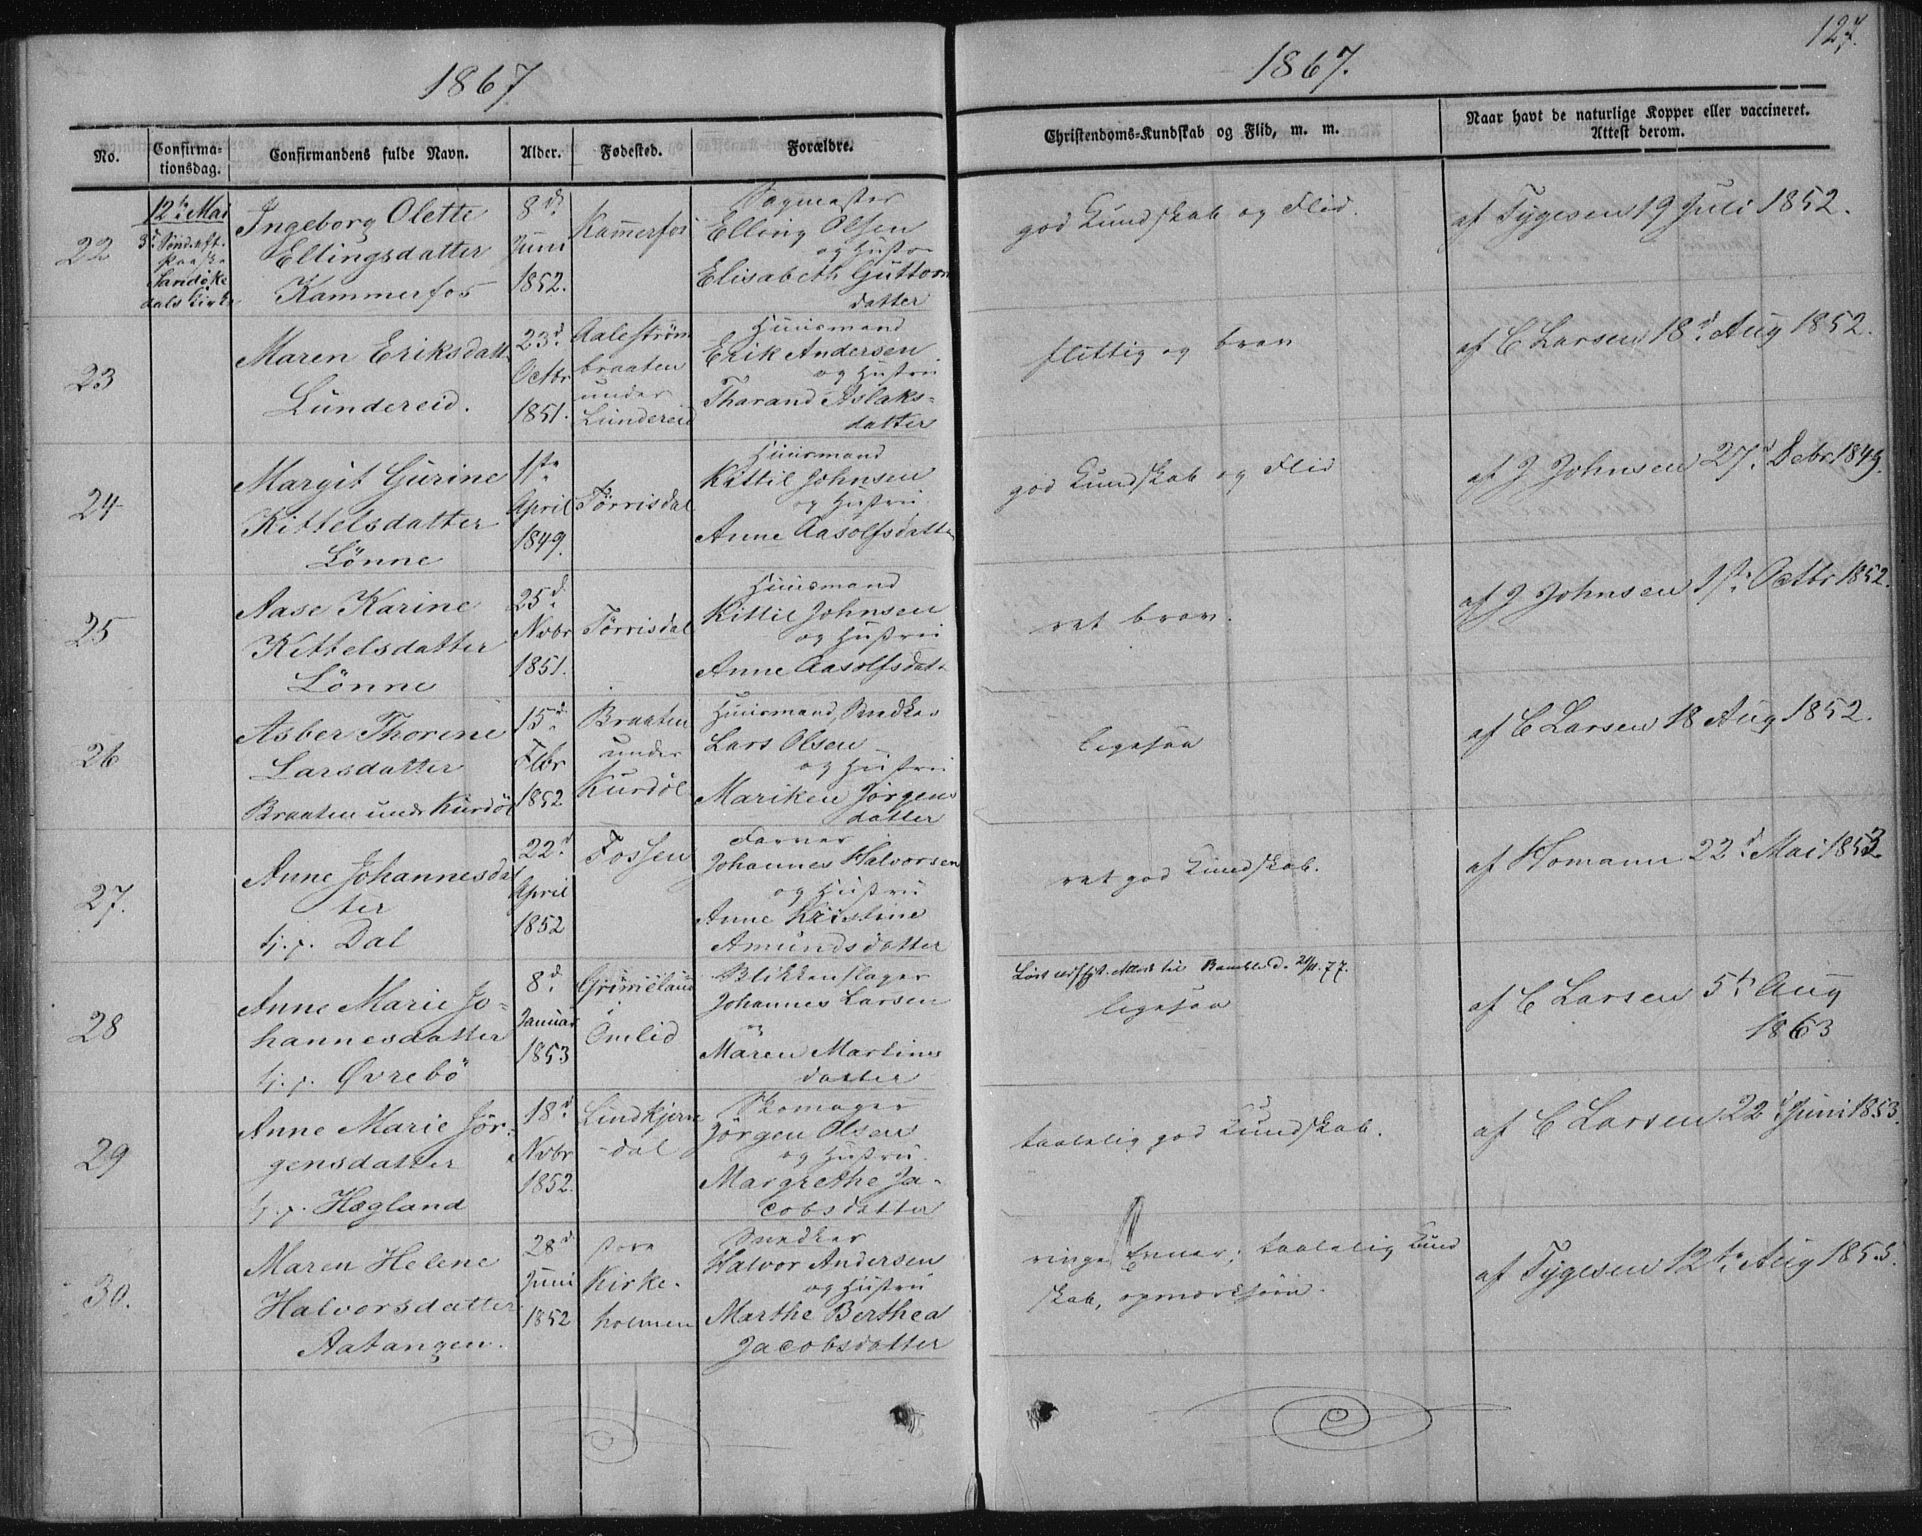 1867
1867.
127.
No.
Confirma-
tionsdag.
Confirmandens fulde Navn.
Alder.
Fødested.
Forældre.
Christendoms-Kundskab og Flid, m. m.
Naar havt de naturlige Kopper eller vaccineret.
Attest derom.
22
12te Mai
Ingeborg Olette
Ellingsdatter
Kammerfos
8d.
Juni
1852.
Kammerfos
Sagmester
Elling Olsen
og Hustru
Elisabeth Guttorm
datter
god Kundskab og Flid.
af Tygesen 19 Juli 1852.
23
Maren Eriksdatt.
Lundereid.
23d.
Octbr
1851.
Aaleström
braaten
under
Lundereid
Huusmand
Erik Andersen
og Hustru
Tharand Aslaks-
datter
flittig og brav
af C Larsen 18d. Aug 1852.
24
Margit Gurine
Kittelsdatter
Lönne
1ste
April
1849.
Tørrisdal
Huusmand
Kittil Johnsen
og Hustru
Anne Aasolfsdatter
god Kundskab og Flid
af J Johnsen 27d. Debr 1849.
25
Aase Karine
Kittelsdatter
Lönne
25d.
Nvbr
1851.
Tørrisdal
Huusmand
Kittil Johnsen
og Hustru
Anne Aasolfsdatt
ret brav.
af J Johnsen 1ste Octbr 1852.
26
Asber Thorine
Larsdatter
Braaten under Kurdöl
15d.
Febr
1852
Braaten
under
Kurdöl
Huusmand, Snedker
Lars Olsen
og Hustru
Mariken Jörgens
datter
ligesaa
af C Larsen 18 Aug 1852.
27.
Anne Johannesdat
ter
tj. p. Dal
22d.
April
1852
Fossen
Farver
Johannes Halvorsen
og Hustru
Anne Kristine
Amundsdatter
ret god Kundskab.
af Homann 22d. Mai 1853
28
Anne Marie Jo-
hannesdatter
tj. p. Øvrebö
8d.
Januar
1853
i
Omlid
Blikkenslager
Johannes Larsen
og
Maren Martines
datter
Attest til Bamble d. 21/11. 77.
ligesaa
af C Larsen 5te Aug
1863
29
Anne Marie Jör-
gensdatter
tj. p. Hægland
18d.
Nvbr
1852.
Lindkjern
-dal
Skomager
Jörgen Olsen
og Hustru.
Margrethe Ja-
cobsdatter
taalelig god Kundskab.
af C Larsen 22d Juni 1853.
30.
Maren Helene
Halvorsdatter
Aatangen.
28d
Juni
1852
store
Kirke-
holmen
Snedker
Halvor Andersen
og Hustru
Marthe Berthea
Jacobsdatter
ringe Evner; taalelig Kund
skab, opmærksom.
af Tygesen 12te Aug 1855.